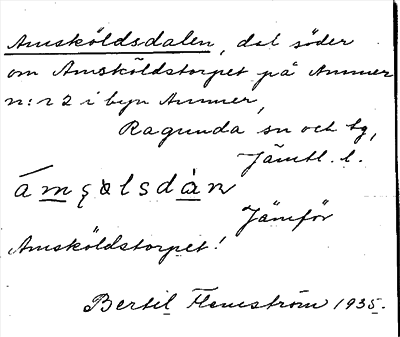 Amsköldsdalen, dal söder
om Amsköldstorpet på Ammer
n:r 2 i byn Ammer,
Ragunda sn och tg,
Jämtl. l.
Jämför
Amsköldstorpet!
Bertil Flemström 1935.